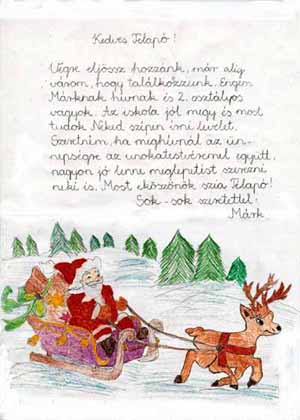 Kedves Télapó!
Végre eljössz hozzánk, már alig
várom, hogy találkozzunk. Engem
Márknak hívnak és 2. osztályos
vagyok. Az iskola jól megy és most
tudok Neked szépen írni levelet.
Szeretném, ha meghívnál az ün-
nepségre az unokatestvéremmel együtt,
nagyon jó lenne meglepetést szerezni
neki is. Most elköszönök szia Télapó!
Sok-sok szeretettel:
Márk